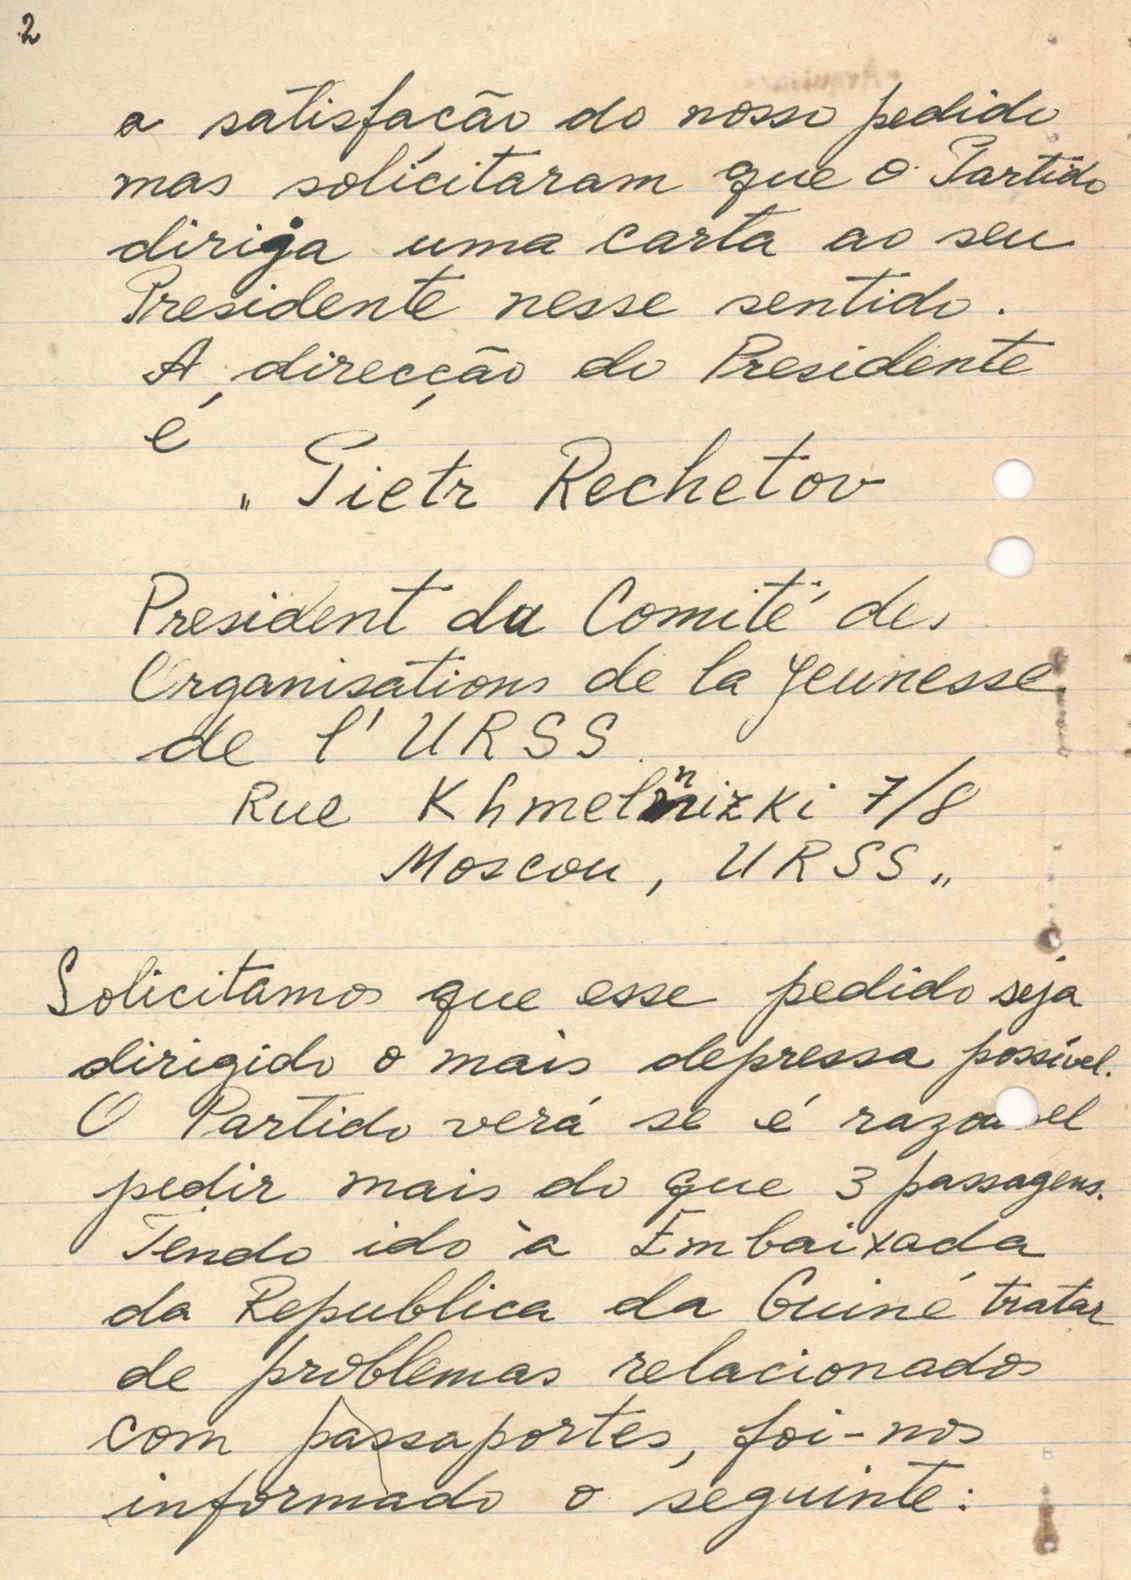 2
a satisfacão do nosso pedido
mas solicitaram que o Partido
dirija uma carta ao seu
Presidente nesse sentido.
A direcção do Presidente
é
" Pietr Rechetov
President du Comité des
Organisations de la Jeunesse
de l'URSS
Rue Khmelnizki 7/8
Moscou, URSS "
Solicitamos que esse pedido seja
dirigido o mais depressa possível.
O Partido verá se é razoavel
pedir mais do que 3 passagens.
Tendo ido à Embaixada
da Republica da Guiné tratar
de problemas relacionados
com passaportes, foi-nos
informado o seguinte: